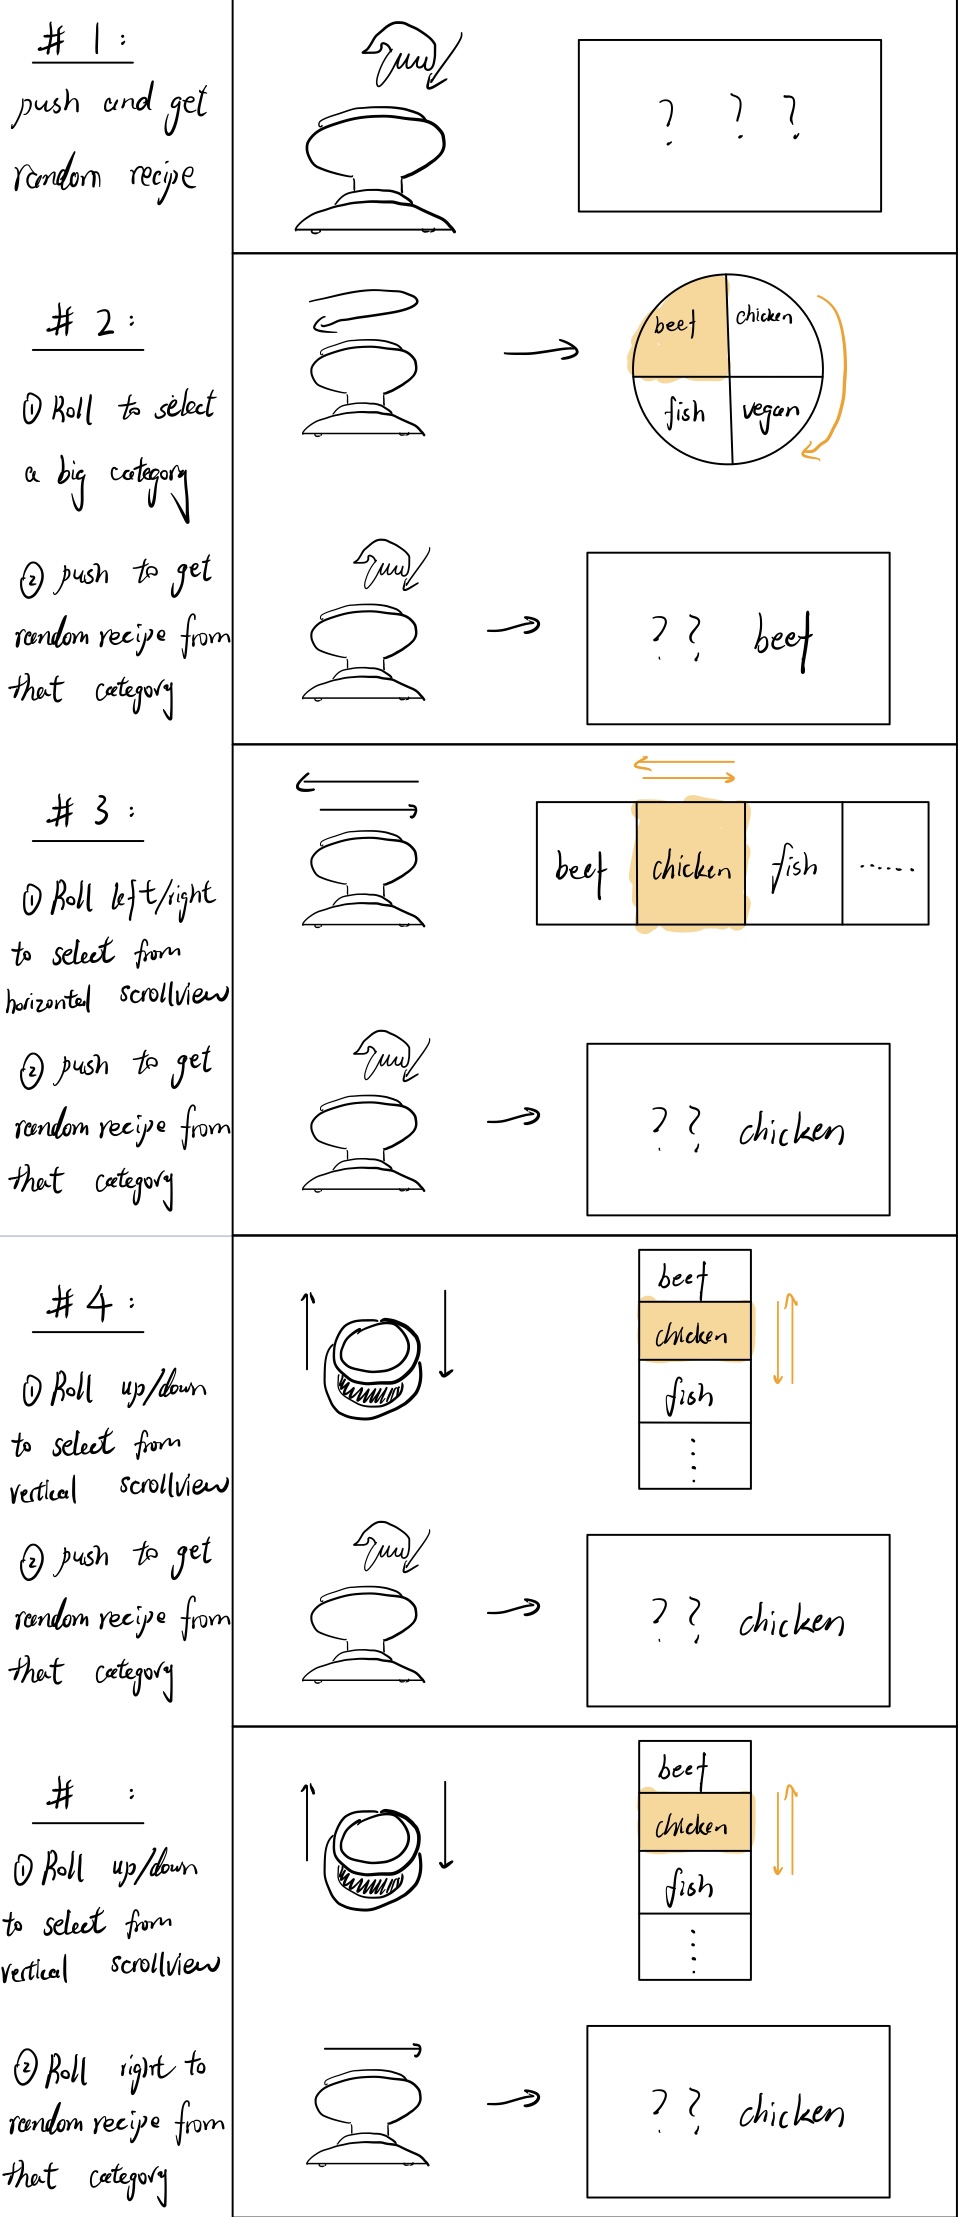 # 1 :
push and get
random recipe
? ? ?
# 2 :
① Roll to select
a big category
beef chicken
fish vegan
② push to get
random recipe from
that category
? ? beef
# 3 :
① Roll left/right
to select from
horizontal scrollview
beef chicken fish ......
② push to get
random recipe from
that category
? ? chicken
# 4 :
① Roll up/down
to select from
vertical scrollview
beef
chicken
fish
....
② push to get
random recipe from
that category
? ? chicken
# :
① Roll up/down
to select from
vertical scrollview
beef
chicken
fish
....
② Roll right to
random recipe from
that category
? ? chicken